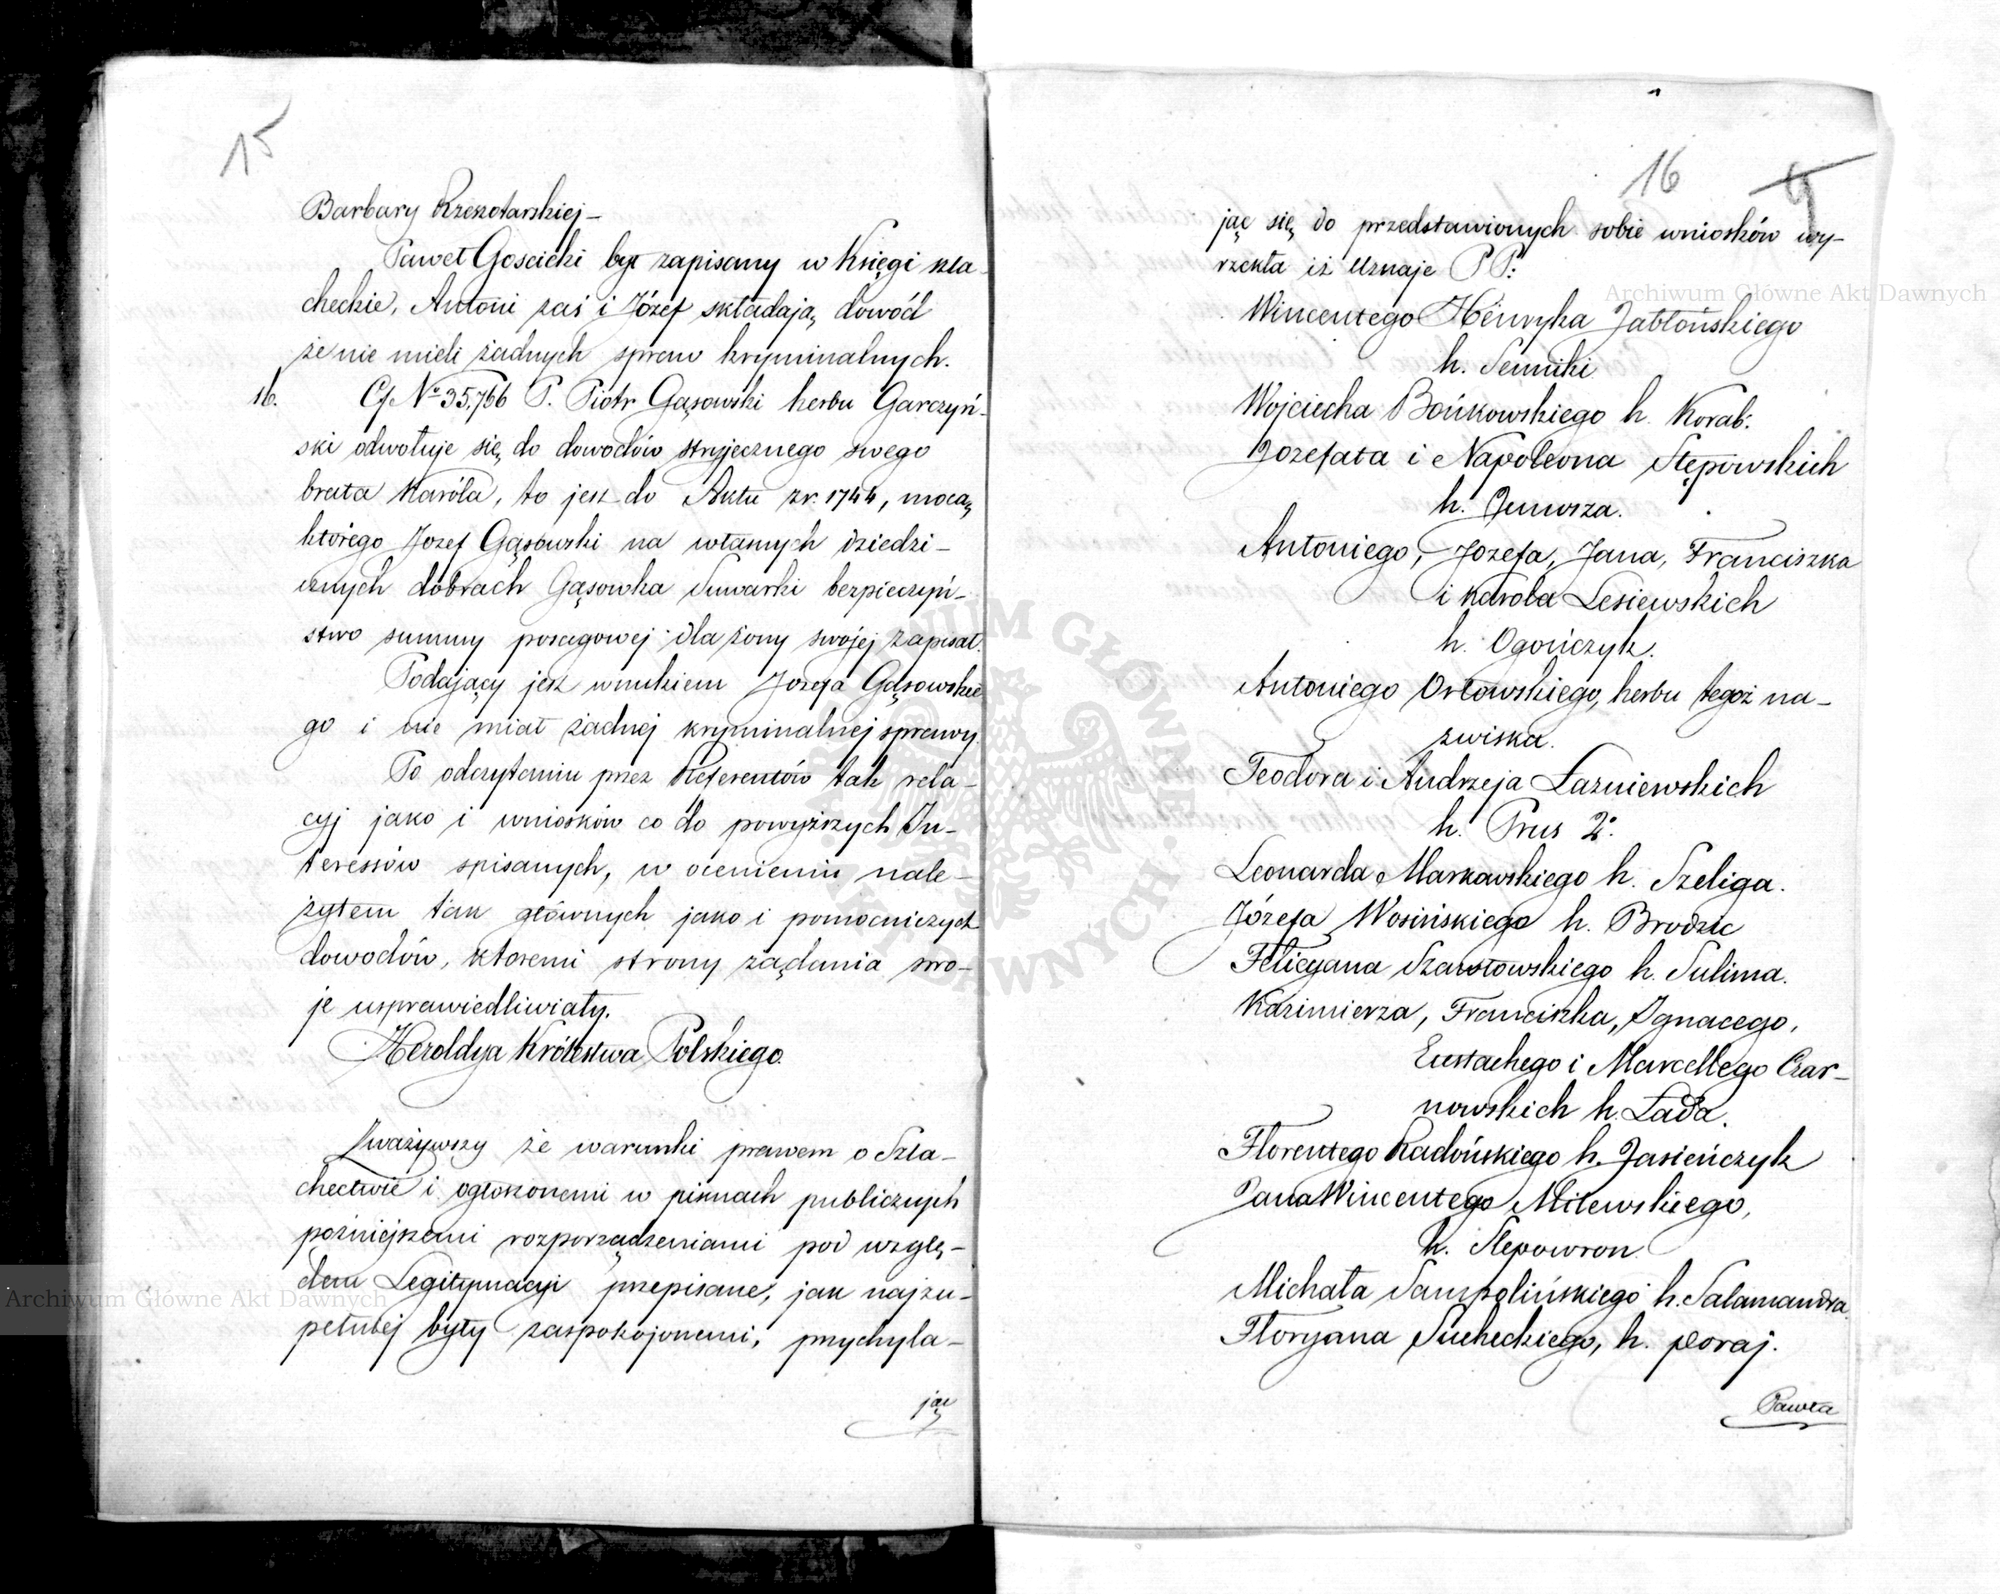 15
Barbary Rzeszotarskiej –
Paweł Gościcki był zapisany w Księgi szla-
checkie, Antoni zaś i Józef składają dowód
że nie mieli żadnych spraw kryminalnych.
16. Cf No 35,766 P. Piotr Gąsowski herbu Garczyń-
ski odwołuje się do dowodów stryjecznego swego
brata Karóla, to jest do Aktu z r. 1744, mocą
którego Józef Gąsowski na własnych dziedzi-
cznych dobrach Gąsowka Skwarki bezpieczeń-
stwo summy posagowej dla żony swojej zapisał.
Podający jest wnukiem Józefa Gąsowskie
go i nie miał żadnej kryminalnej sprawy.
Po odczytaniu przez Referentów tak rela-
cyj jako i wniosków co do powyższych In-
teressów spisanych, w ocenieniu nale-
żytem tak głównych jako i pomocniczych
dowodów, ktoremi strony żądania swo-
je usprawiedliwiały.
Heroldya Królestwa Polskiego
Zważywszy że warunki prawem o Szla-
chectwie i ogłoszonemi w pismach publicznych
późniejszemi rozporządzeniami pod wzglę-
dem Legitymacyi przepisane, jak najzu-
pełniej były zaspokojonemi, przychyla-
jąc
16
9
jąc się do przedstawionych sobie wniosków wy-
rzekła iż Uznaje PP:
Wincentego Henryka Jabłońskiego
h. Pomiki
Wojciecha Bońkowskiego h. Korab:
Jozefata i Napoleona Stępowskich
h. Junosza.
Antoniego, Jozefa, Jana, Franciszka
i Karola Lesiewskich
h. Ogończyk.
Antoniego Orłowskiego, herbu tegoż na-
zwiska.
Teodora i Andrzeja Łazniewskich
h. Prus 2o.
Leonarda Markowskiego h. Szeliga.
Józefa Wosińskiego h. Brodzic
Felicyana Szawłowskiego h. Sulima.
Kazimierza, Franciszka, Ignacego,
Eustachego i Marcellego Czar-
nowskich h. Łada.
Florentego Radońskiego h. Jasieńczyk
Jana Wincentego Milewskiego,
h. Slepowron
Michała Sampolińskiego h. Salamandra
Floryana Sucheckiego, h. Poraj.
Pawła
Archiwum Główne Akt Dawnych
Archiwum Główne Akt Dawnych